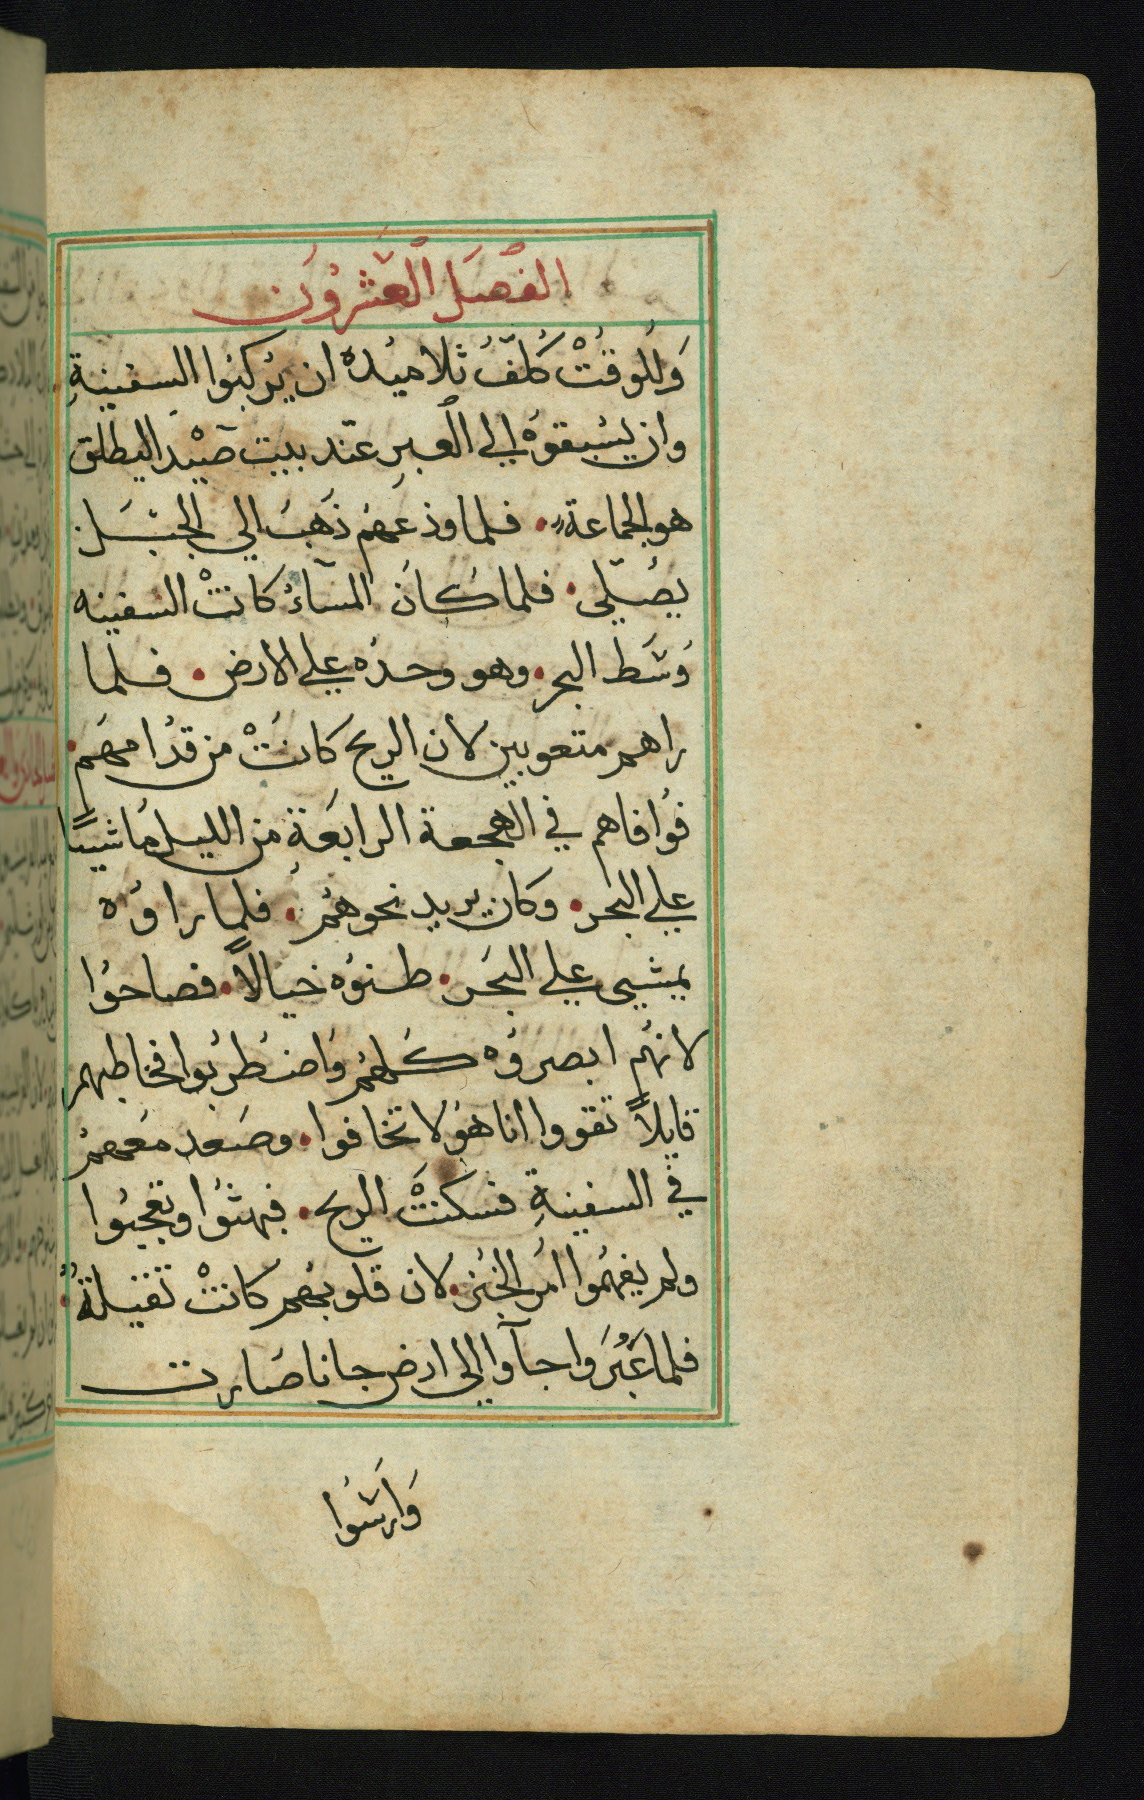 الفصل العشرون
وَللوقتْ كُلّفَ ثلاميدهُ ان يُركبُوا السفينةِ
وان يسْبقوهُ الي العبرِ عنْد بيت صَيْدا ليطلق
هو الجماعة. فلما وذعهُم ذَهبَ الي الجبَل
يصُلّي. فلما كانَ المسآءُ كانتْ السفينه
وَسَط البحر. وهو وحدُه علي الارض. فلما
راهم متعوبين لان الريح كانتْ من قدُامهُم.
فوُافاهم في الهجعة الرابعَةِ من الليل مُاشيًا
علي البحر. وكان يريد نحوهُم. فلما راوُه
يمشي علي البحَر. ظنوُه خيالاً. فصاحوُا
لانهُم ابصروُه كلهُم وَاضطُربُوا فخاطبهم
قايلاً تقووا انا هوُ لا تخافوا. وصَعد معَهمُ
في السفينةِ فسكنتْ الريح. فبهتوُا وتعجبُوا
ولم يفهمُوا امُر الخبُز. لان قلوبهُم كانتْ تقيلةً
فلما عَبَروَا جآوا الي ارض جاناصَارت
وَارسَوُا